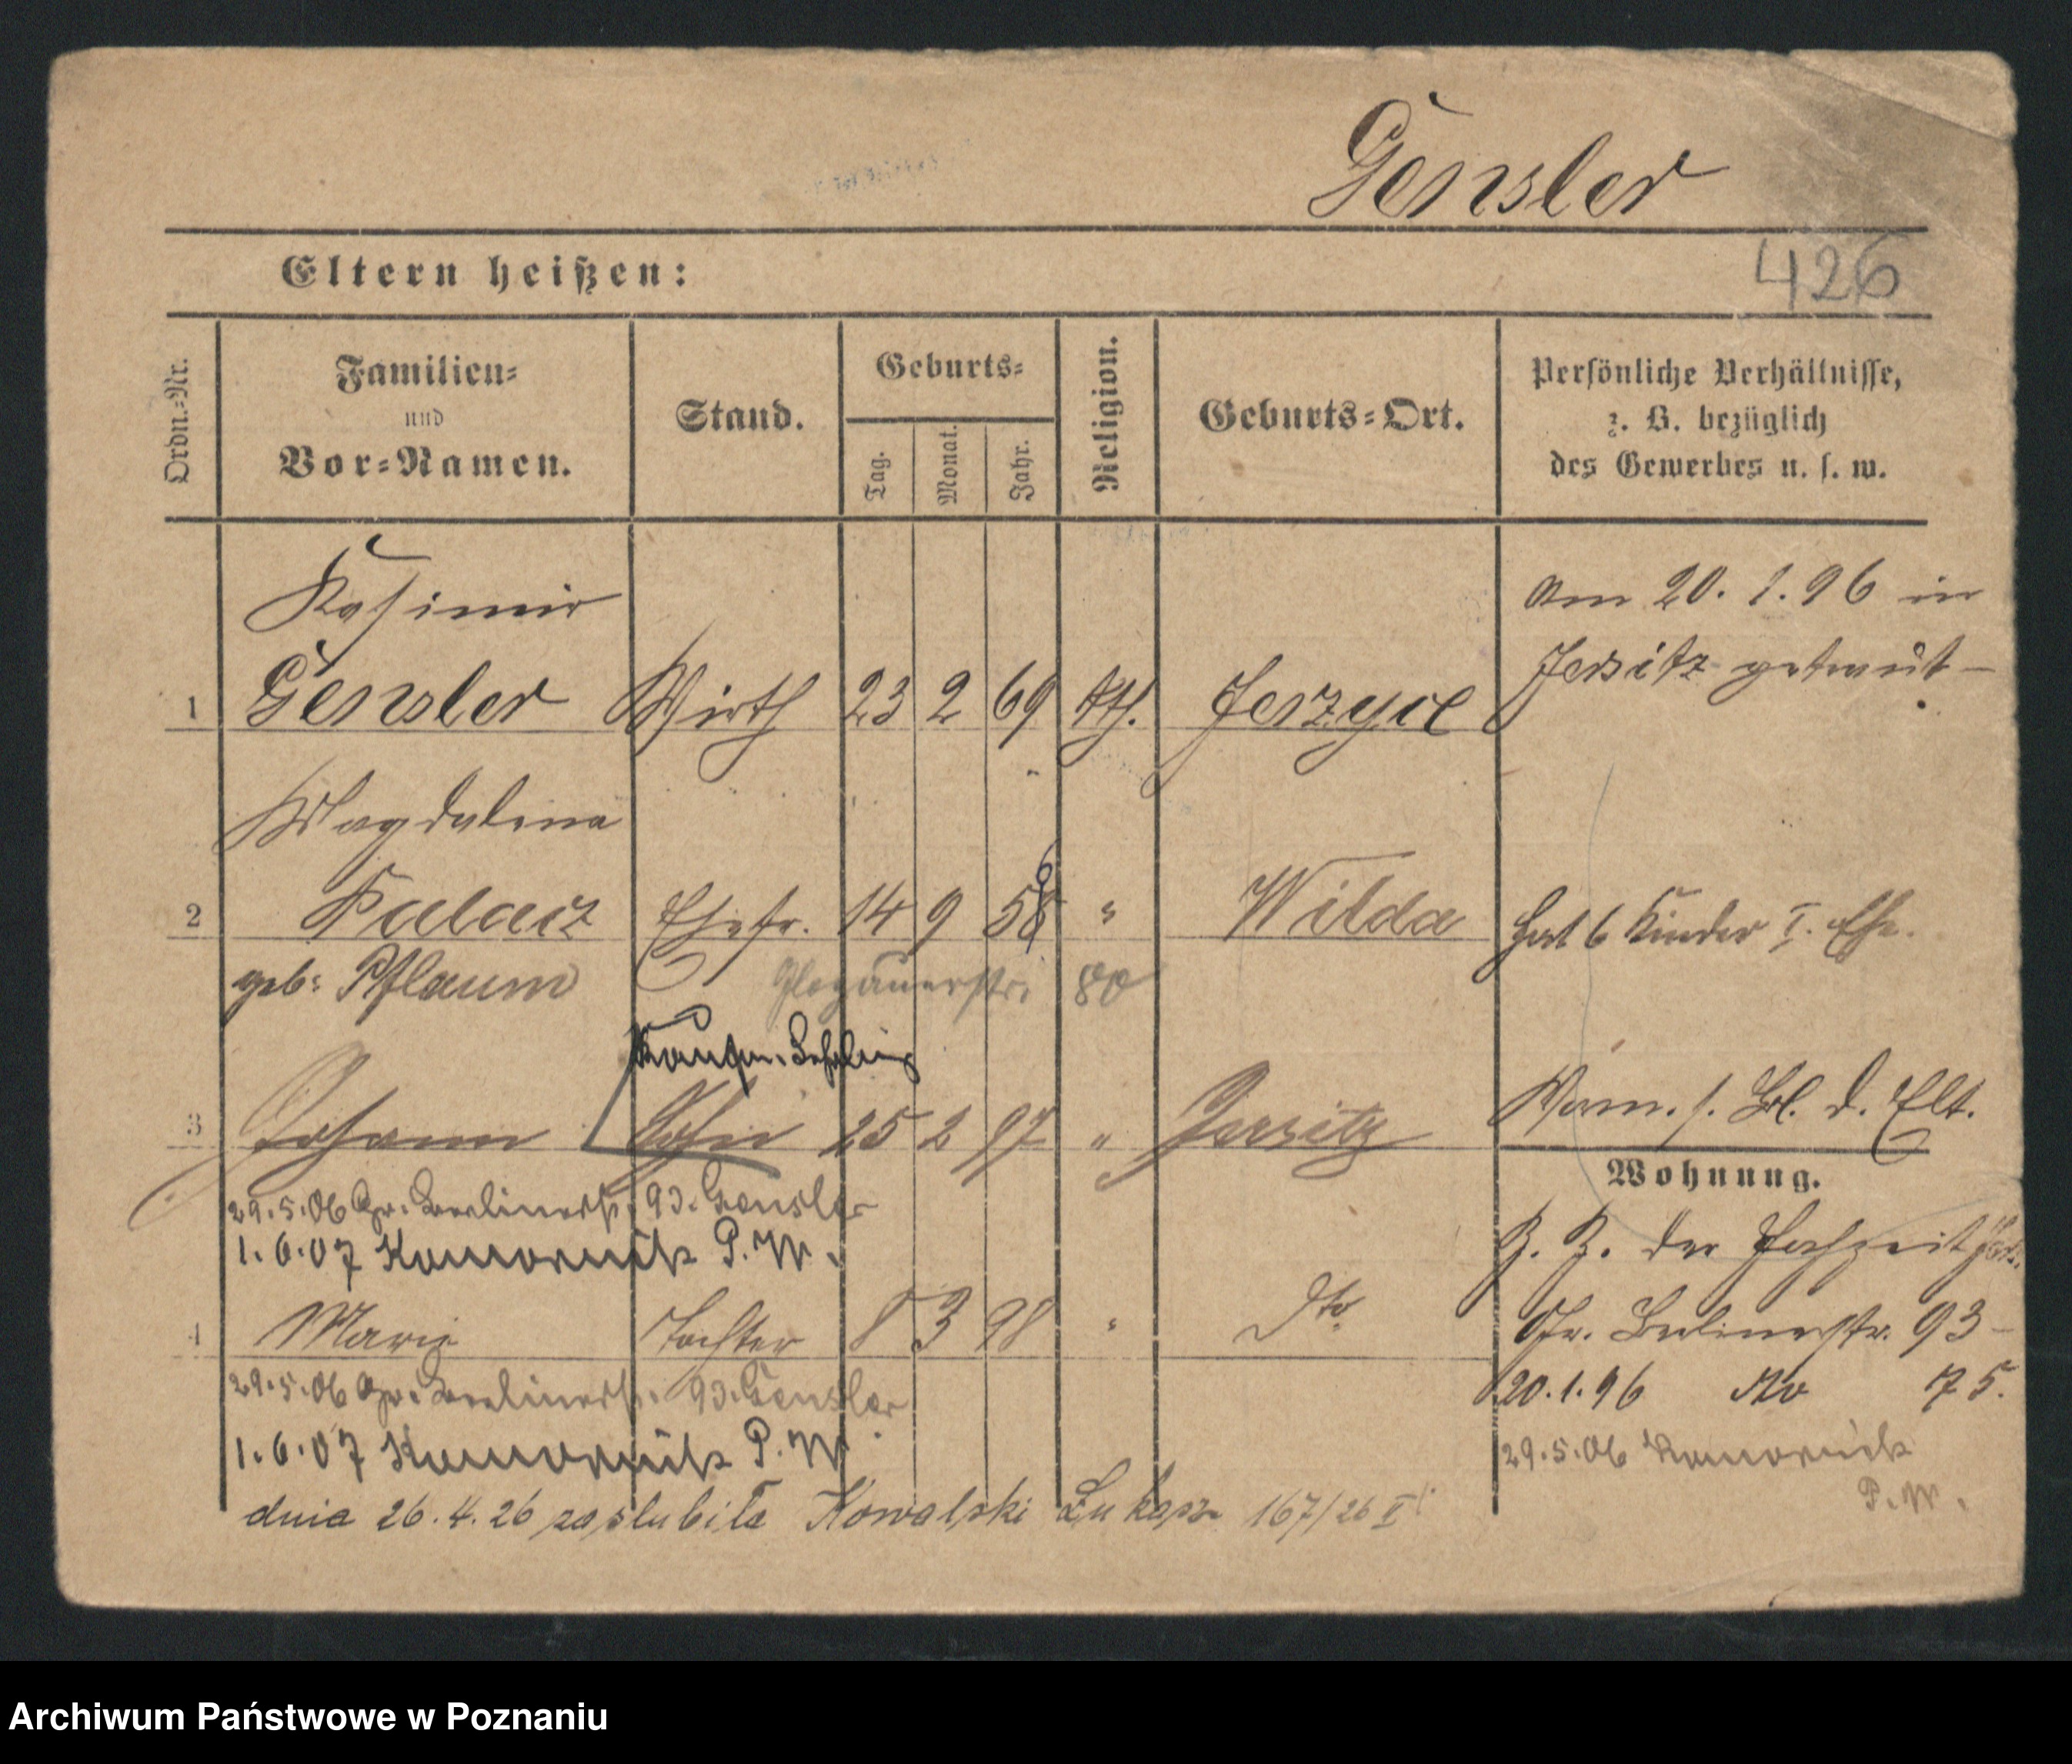 Gensler
426
Eltern heißen:
Ordn.-Nr.
Familien-
und
Vor-Namen.
Stand.
Geburts-
Tag.
Monat.
Jahr.
Religion.
Geburts-Ort.
Persönliche Verhältnisse,
z. B. bezüglich
des Gewerbes u. s. w.
Kasimir
1 Gensler Wirth 23 2 69 kth. Jerzyce
am 20. 1. 96 in
Jersitz getraut
Magdalena
2 Palacz Ehefr. 14 9 58 6 " Wilda hat 6 Kinder I. Ehe.
geb: Pflaum Glogauerstr. 80
Kaufm. Lehrling
3 Johann Sohn 25 2 97 " Jersitz Bl. d. Elt.
29.5.06 Gr. Berlinerstr. 93. Gensler
1.6.07 Komornik P. W.
4 Marie Tochter 8 3 98 " Dto
29.5.06 Gr. Berlinerstr. 93. Gensler
1.6.07 Komornik P. W.
dnia 26.4.26 zaślubiła Kowalski Łukasz 167/26 II
Wohnung.
Z. Z. der Hochzeit
Gr. Berlinerstr. 93
20.1.96 No 75.
29.5.06 Komornik
P. W.
Archiwum Państwowe w Poznaniu